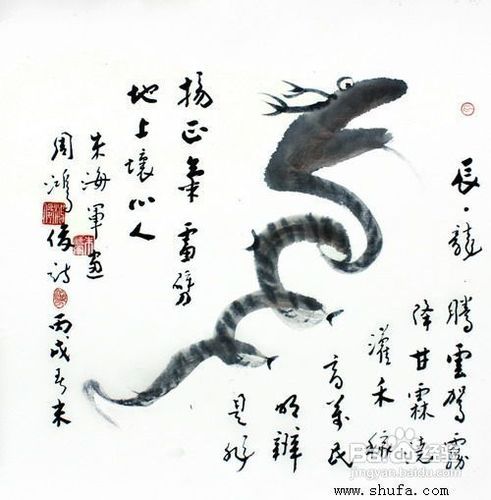 辰·龍
騰雲駕霧
降甘霖澆
灌禾稼
育萬民
明辨
是非
揚正氣 雷劈
地上壞心人
朱海軍画
周鴻俊詩
丙戌春末
Baidu经验
jingyan.baidu.com
www.shufa.com